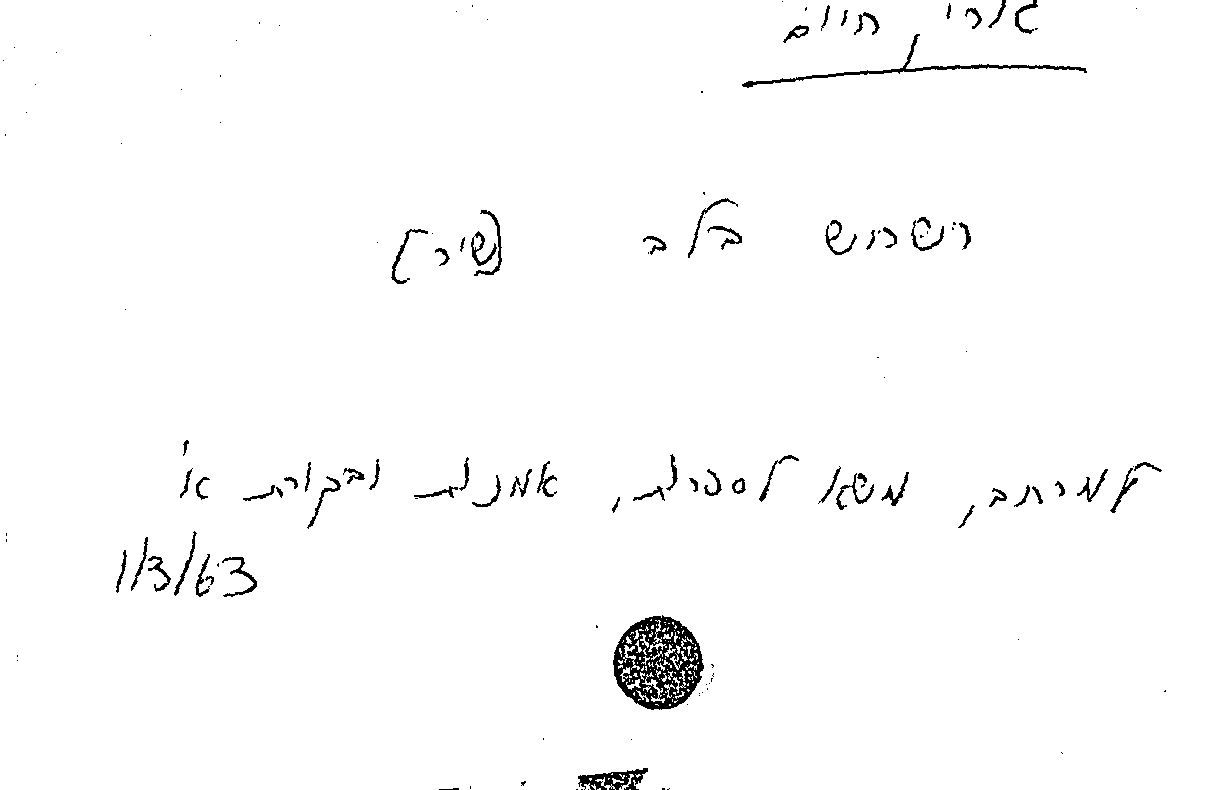 גורי, חיים
בלב [שיר]
למרחב, משא לספרות, אמנות ובקורת א'
1/3/63